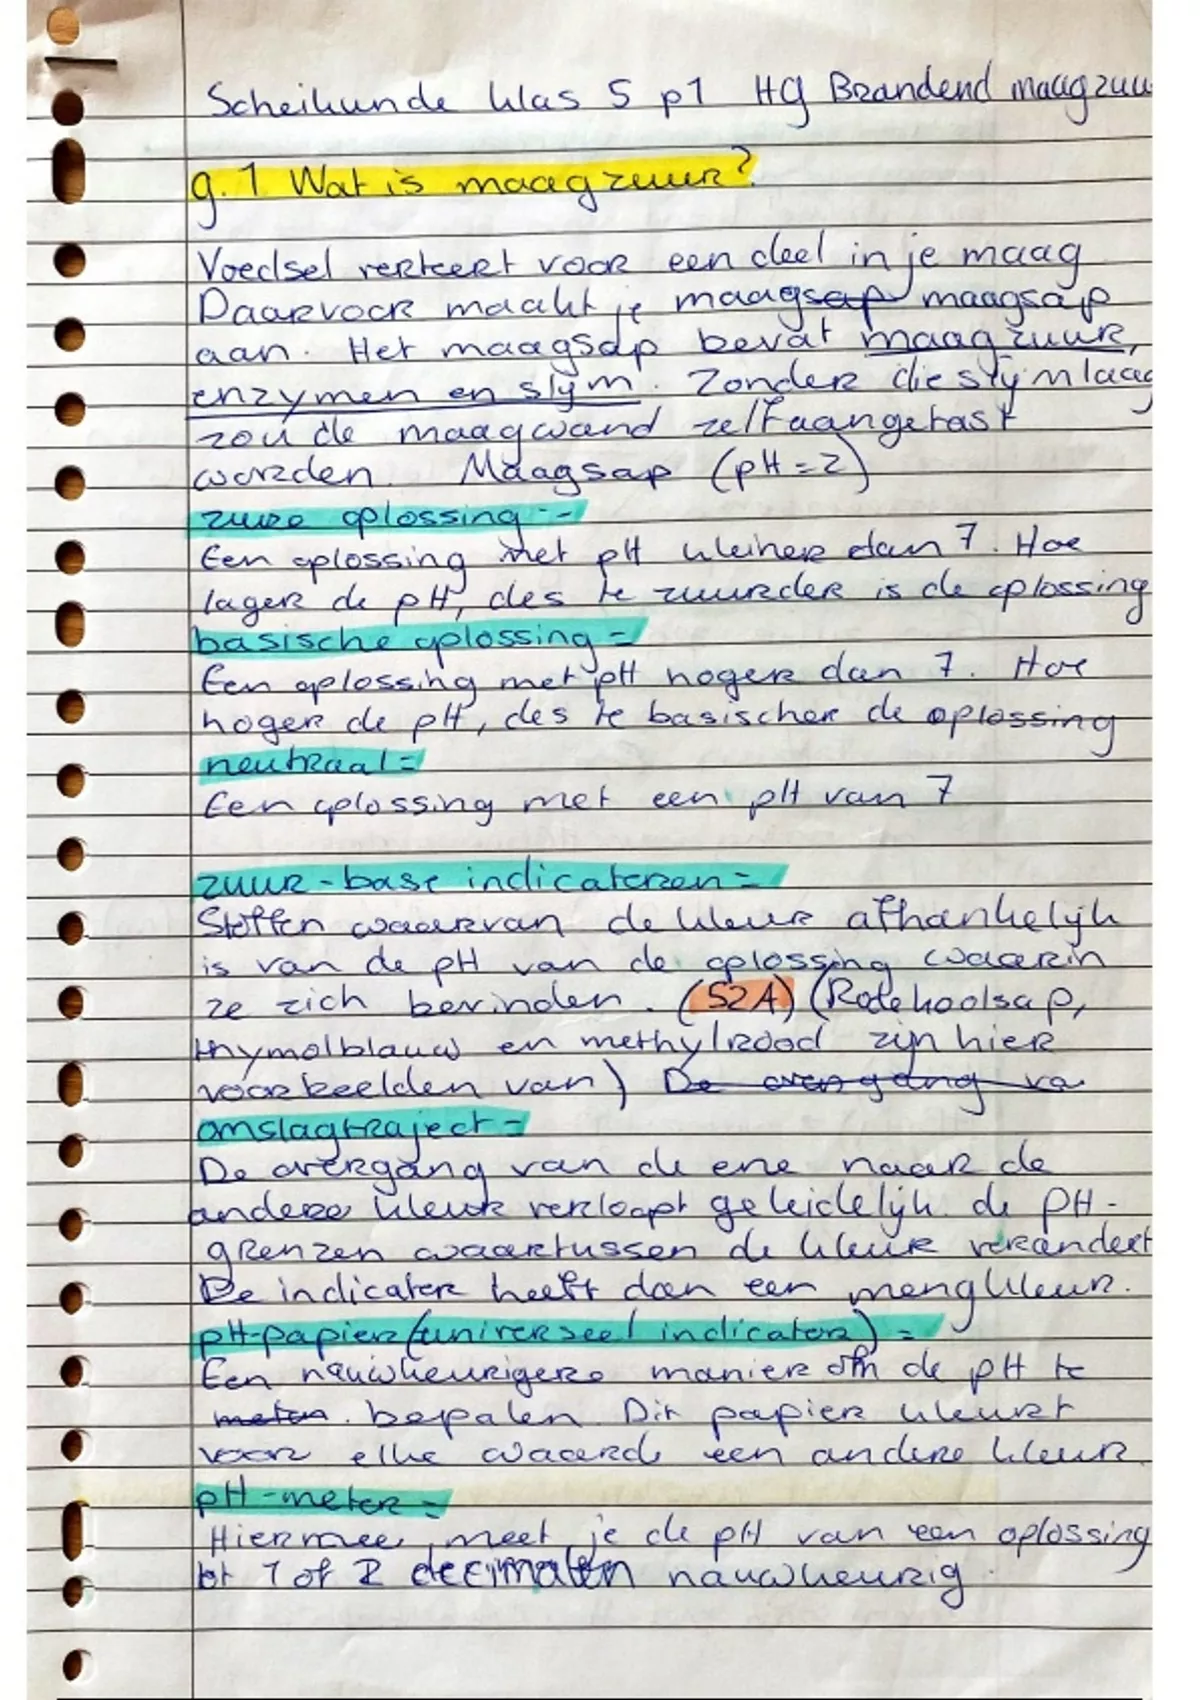 Scheikunde klas 5 p1 H9 Brandend maagzuu
9.1 Wat is maagzuur?
Voedsel verteert voor een deel in je maag
Daarvoor maakt je maagsap maagsap
aan. Het maagsap bevat maagzuur,
enzymen en slijm. Zonder die slijmlaag
zou de maagwand zelf aangetast
worden. Maagsap (pH=2)
zure oplossing =
Een oplossing met pH kleiner dan 7. Hoe
lager de pH, des te zuurder is de oplossing
basische oplossing =
Een oplossing met pH hoger dan 7. Hoe
hoger de pH, des te basischer de oplossing
neutraal =
Een oplossing met een pH van 7
zuur-base indicatoren =
Stoffen waarvan de kleur afhankelijk
is van de pH van de oplossing waarin
ze zich bevinden. (52A) (Rodekoolsap,
thymolblauw en methylrood zijn hier
voorbeelden van) De overgang va
omslagtraject =
De overgang van de ene naar de
andere kleur verloopt geleidelijk. de pH-
grenzen waartussen de kleur verandert
De indicator heeft dan een mengkleur.
pH-papier (universeel indicator) =
Een nauwkeurigere manier om de pH te
meten. bepalen. Dit papier kleurt
voor elke waarde een andere kleur.
pH-meter =
Hiermee meet je de pH van een oplossing
tot 1 of 2 decimalen nauwkeurig.